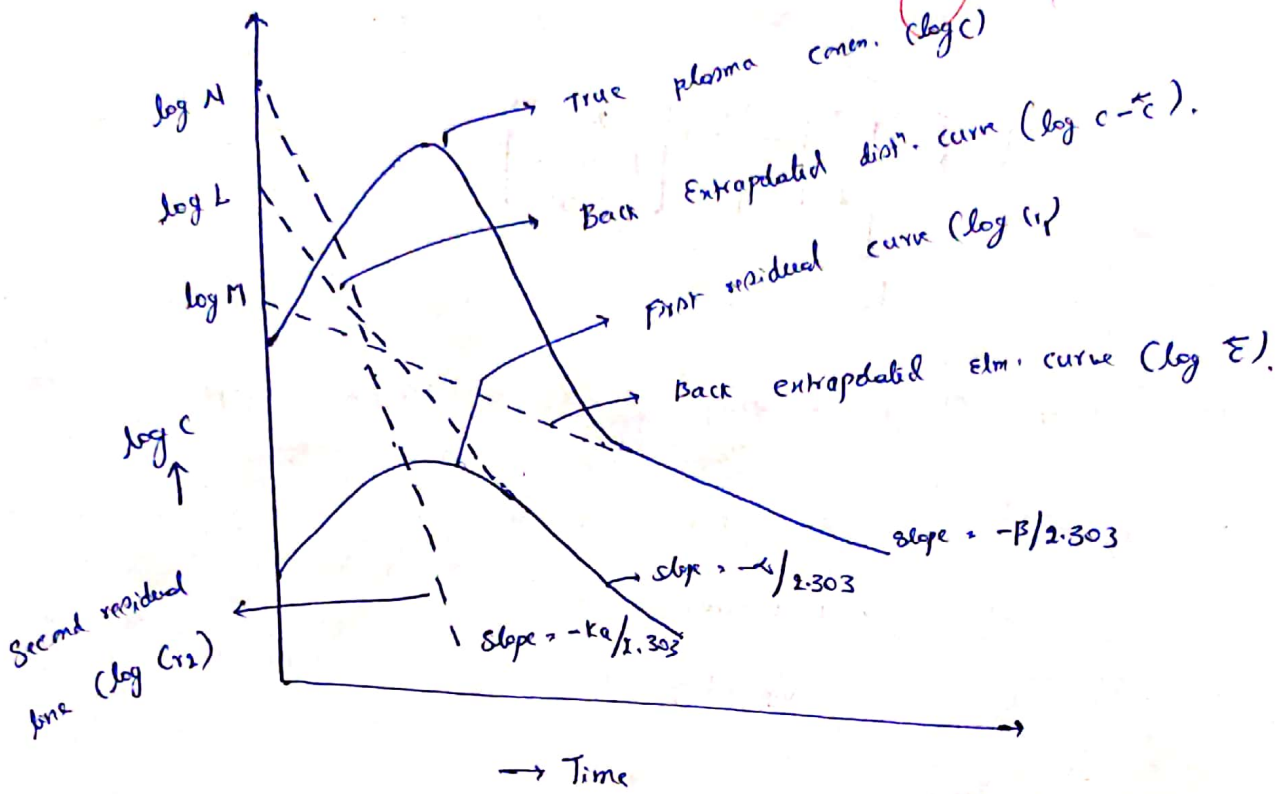 log N
True plasma concn. (log C)
log L
Back Extrapolated distⁿ. curve (log c-c̄).
log M
First residual curve (log Cr1)
Back extrapolated Elm. curve (log c̄).
log C
slope = -β/2.303
slope = -α/2.303
slope = -Ka/2.303
Second residual
line (log Cr2)
→ Time